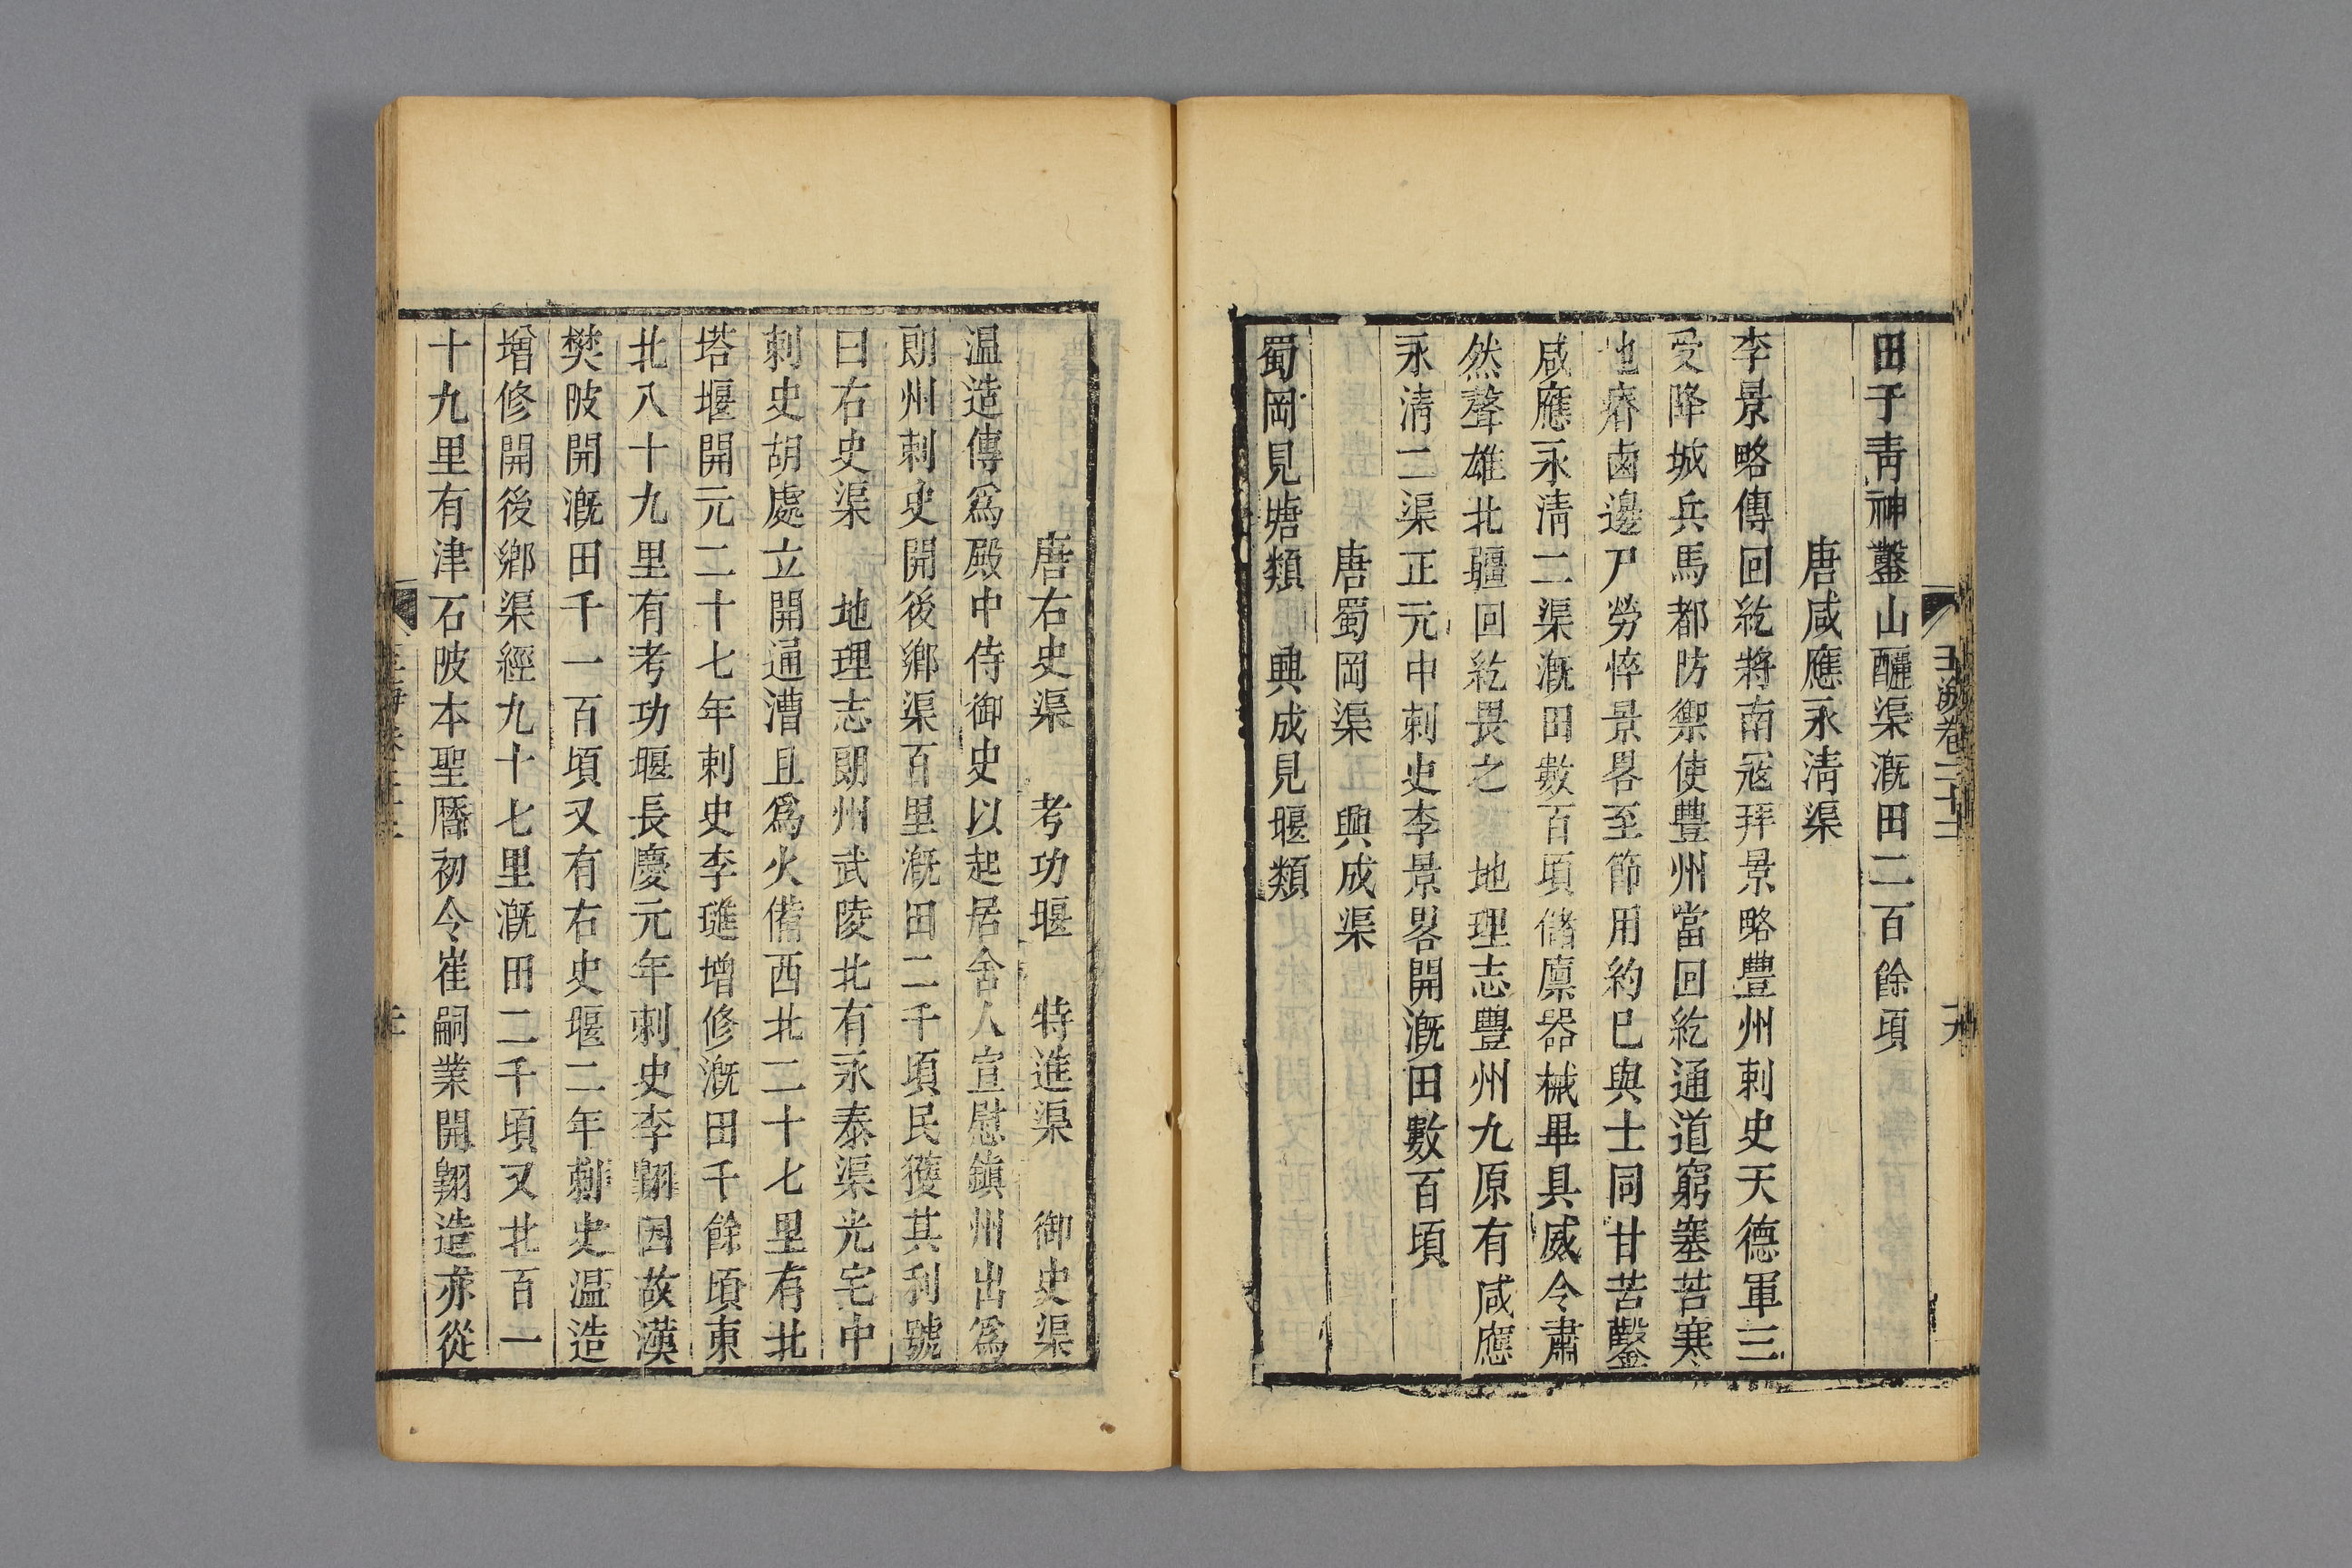 玉海卷二十二
田于靑神鑿山釃渠漑田二百餘頃
唐咸應永淸渠
李景略傳回紇將南寇拜景略豐州刺史天德軍三
受降城兵馬都防禦使豐州當回紇通道窮塞苦寒
地瘠鹵邊尸勞悴景畧至節用約已與士同甘苦鑿
咸應永淸二渠漑田數百頃儲廪器械畢具威令肅
然聲雄北疆回紇畏之 地理志豐州九原有咸應
永淸二渠正元中刺史李景畧開漑田數百頃
唐蜀岡渠 興成渠
蜀岡見塘類 興成見堰類
唐右史渠 考功堰 特進渠 御史渠
温造傳爲殿中侍御史以起居舍人宣慰鎭州出爲
朗州刺史開後鄉渠百里漑田二千頃民獲其利號
曰右史渠 地理志朗州武陵北有永泰渠光宅中
刺史胡處立開通漕且爲火備西北二十七里有北
塔堰開元二十七年刺史李璡增修漑田千餘頃東
北八十九里有考功堰長慶元年刺史李翺因故漢
樊陂開漑田千一百頃又有右史堰二年刺史温造
增修開後鄉渠經九十七里漑田二千頃又北百一
十九里有津石陂本聖曆初令崔嗣業開翺造亦從